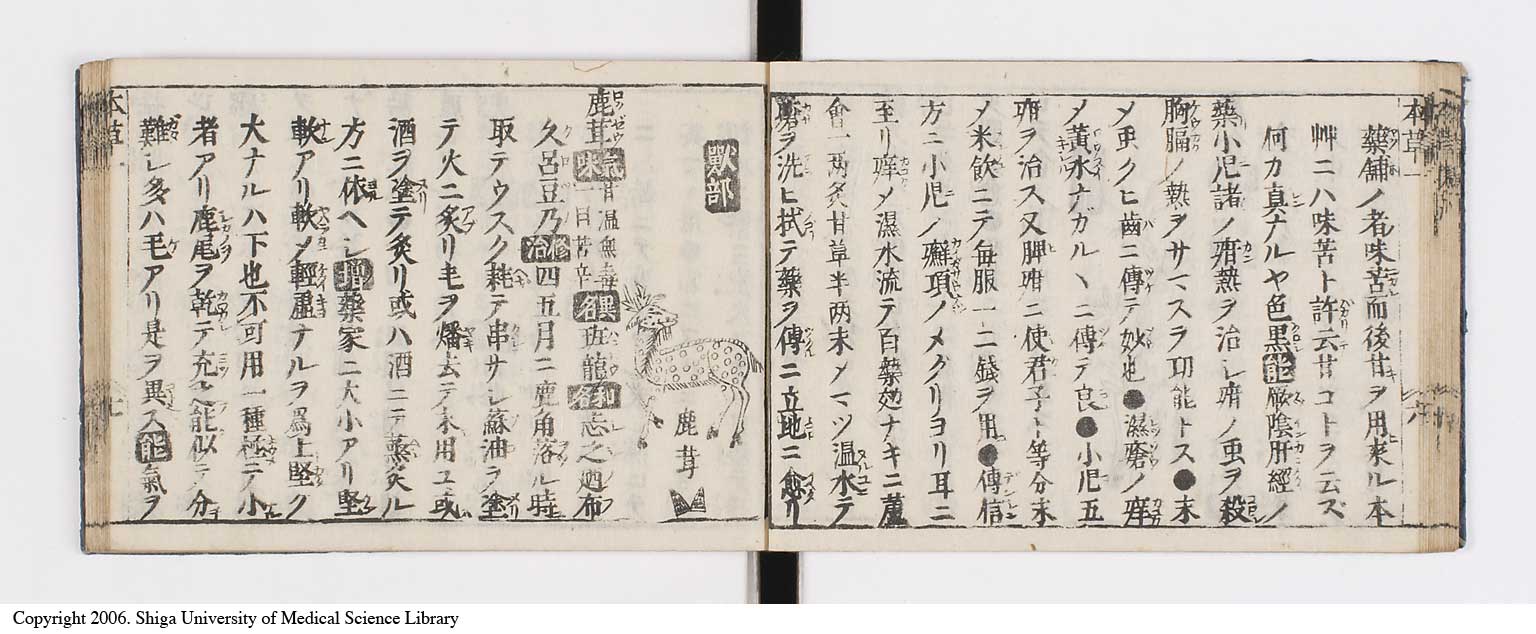 本草一
六
藥舗ノ者味苦而後甘ヲ用来ル本
艸ニハ味苦ト許云甘コトヲ云ズ
何カ真ナルヤ色黒能厥陰肝經ノ
藥小児諸ノ疳熱ヲ治シ疳ノ虫ヲ殺
胸膈ノ熱ヲサマスヲ功能トス●末
メ虫クヒ歯ニ傳テ妙也●濕瘡ノ痒
メ黄水ナガルヽニ傳テ良●小児五
疳ヲ治ス又脾疳ニ使君子ト等分末
メ米飲ニテ毎服一二錢ヲ用●傳信
方ニ小児ノ癬項ノメグリヨリ耳ニ
至リ痒メ濕水流テ百藥効ナキニ蘆
會一兩炙甘草半两末メマヅ温水テ
瘡ヲ洗ヒ拭テ藥ヲ傳ニ立地ニ愈リ
獸部
鹿茸
鹿茸氣味甘温無毒一曰苦辛異名班龍和名志之廼布
久呂豆乃修治四五月ニ鹿角落ル時
取テウスク耗テ串サシ蘇油ヲ塗
テ火ニ炙リ毛ヲ燔去テ末用ユ或
酒ヲ塗テ炙リ或ハ酒ニテ蒸炙ル
方ニ依ヘシ撰藥家ニ大小アリ堅
軟アリ軟メ輕虚ナルヲ爲上堅ク
大ナルハ下也不可用一種極テ小
者アリ鹿尾ヲ乾テ充之能似テ分
難シ多ハ毛アリ是ヲ異ス能氣ヲ
本草一
七
Copyright 2006. Shiga University of Medical Science Library